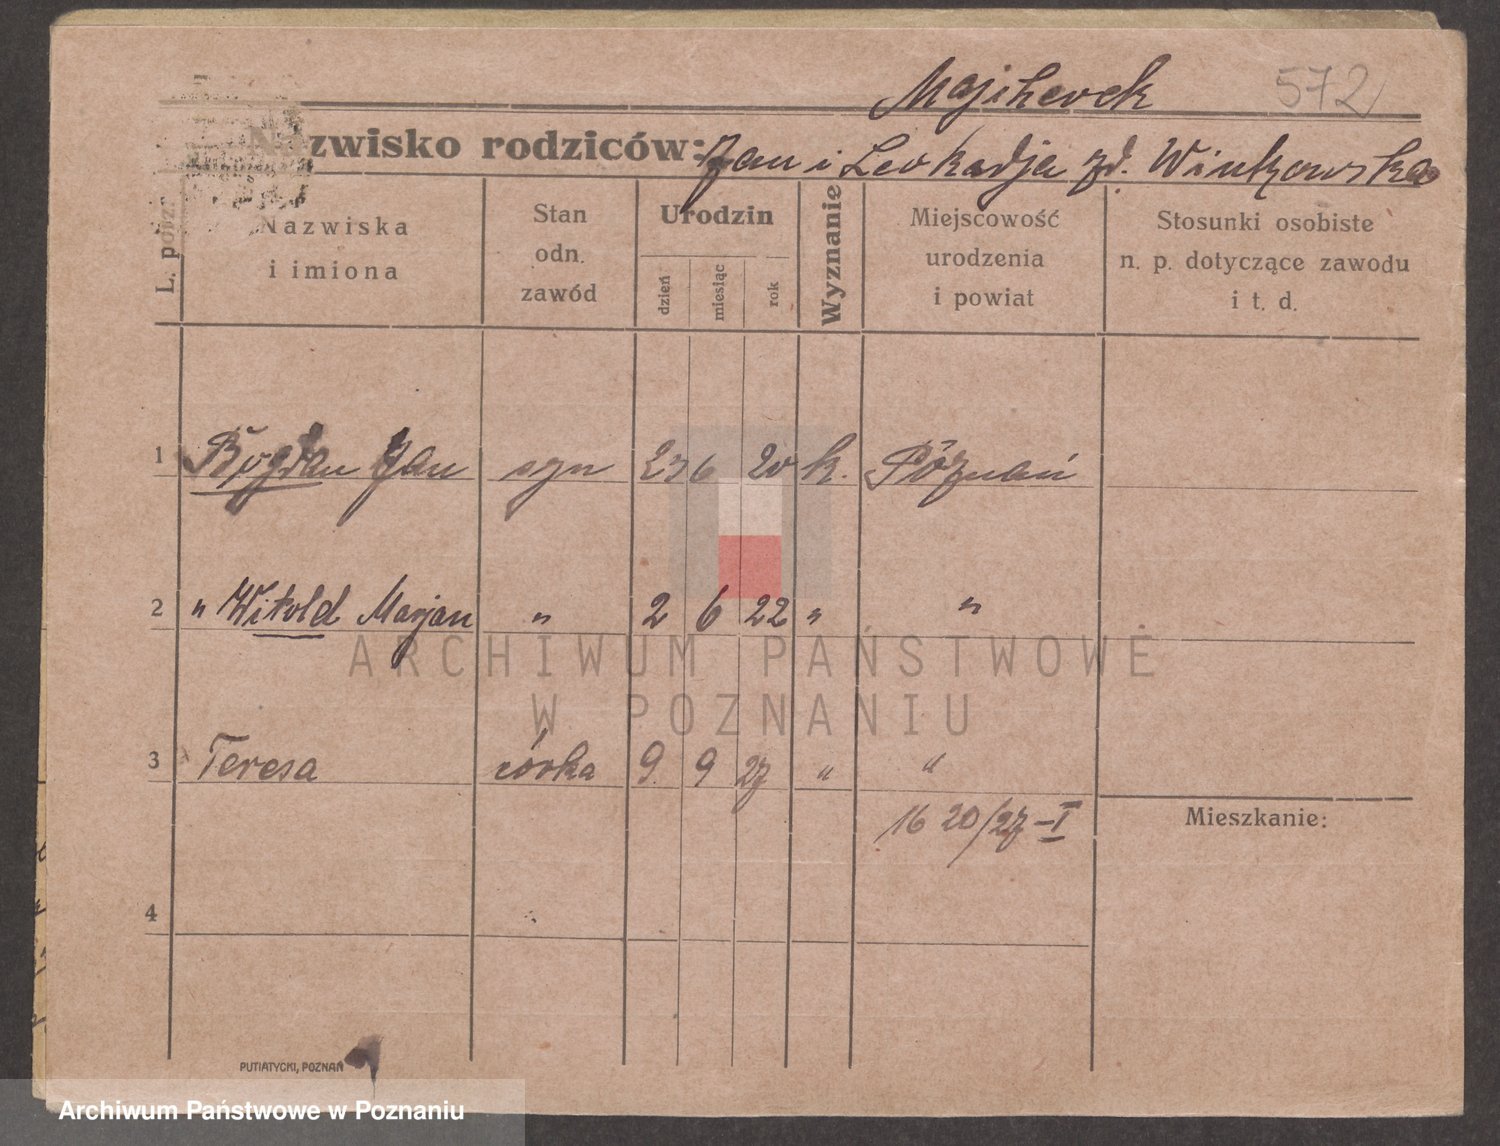 Majcherek 572
Nazwisko rodziców: Jan i Leokadja zd. Wintzowska
L. porz.
Nazwiska
i imiona
Stan
odn.
zawód
Urodzin
dzień
miesiąc
rok
Wyznanie
Miejscowość
urodzenia
i powiat
Stosunki osobiste
n. p. dotyczące zawodu
i t. d.
1 Bogdan Jan syn 23 6 20 k. Poznań
2 " Witold Marjan " 2 6 22 " "
ARCHIWUM PAŃSTWOWE
W POZNANIU
3 Teresa córka 9. 9 27 " "
16 20/27 – I
Mieszkanie:
4
PUTIATYCKI, POZNAŃ
Archiwum Państwowe w Poznaniu